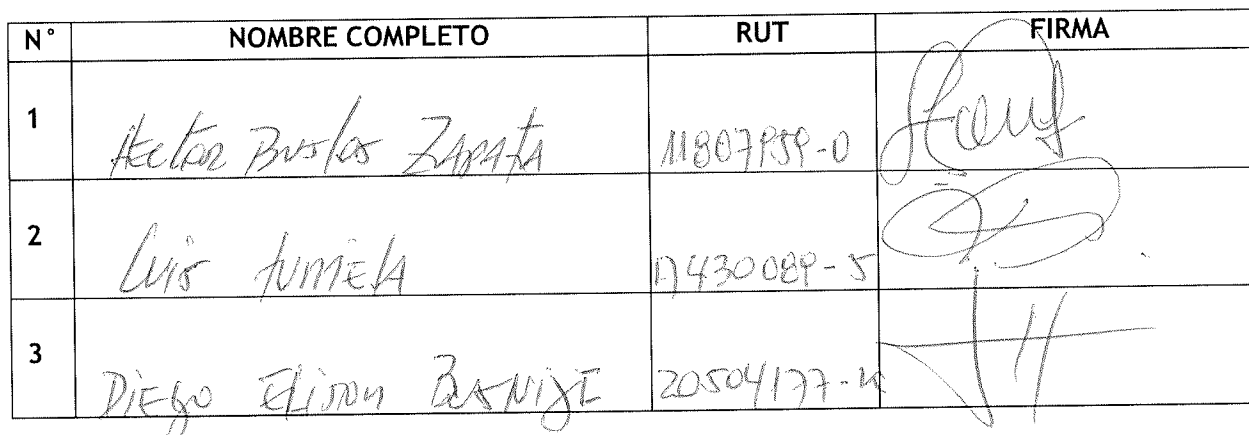 N° NOMBRE COMPLETO RUT FIRMA
1 Hector Bustos ZAPATA 11807959-0
2 Luis 17430089-5
3 DIEGO 20504177-K